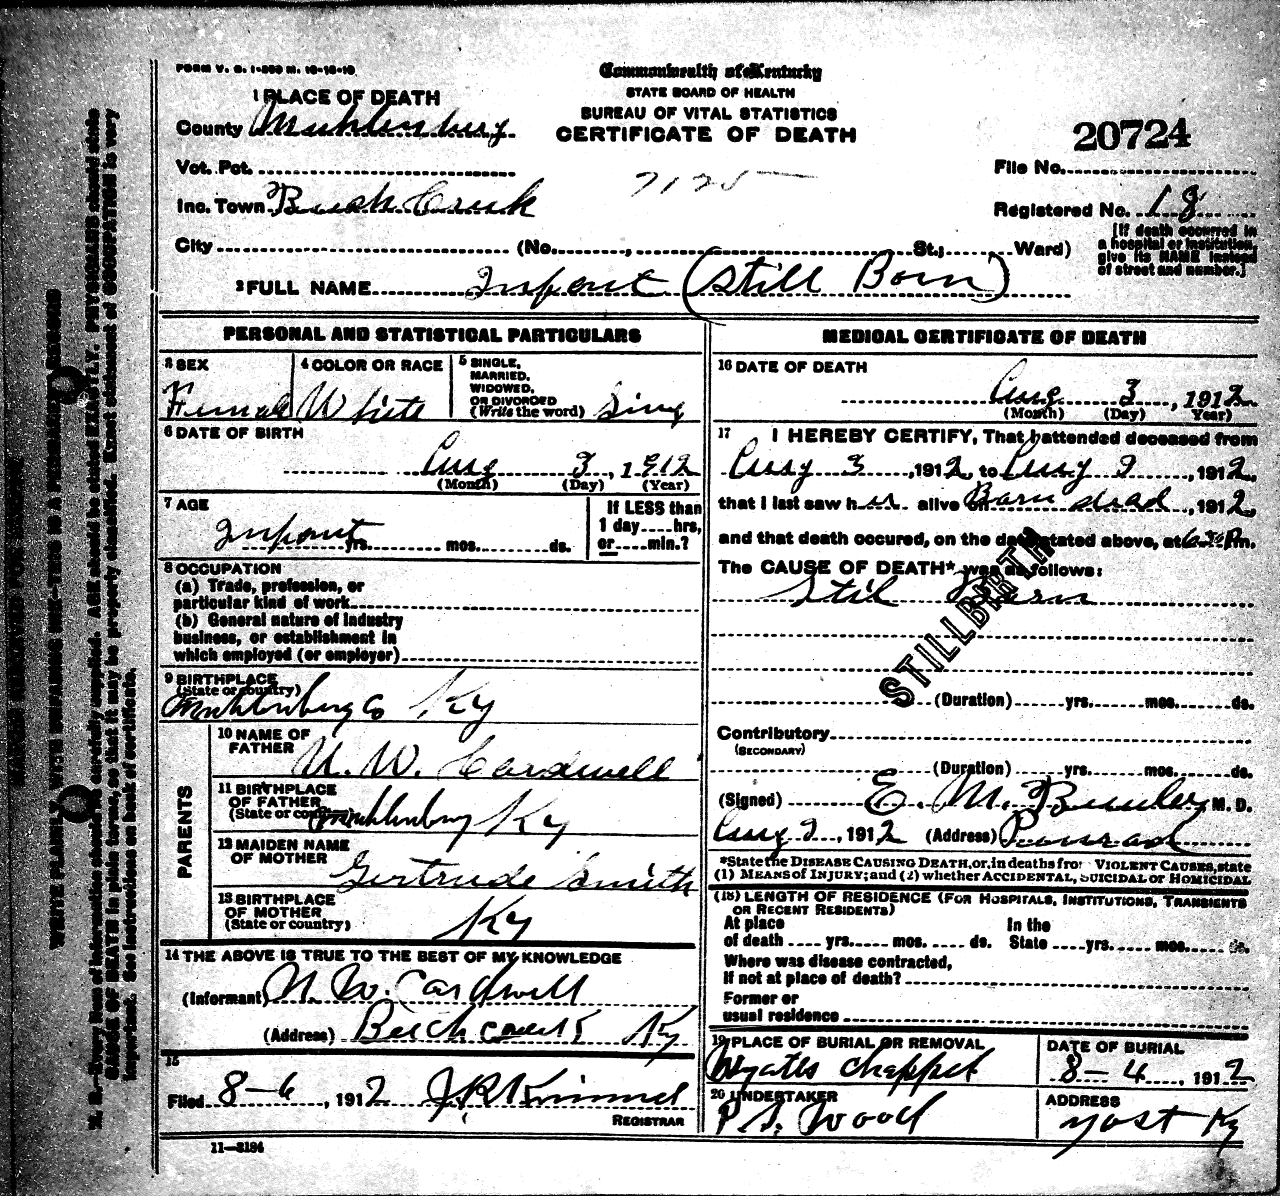 FORM V. S. 1-
Commonwealth of Kentucky
STATE BOARD OF HEALTH
BUREAU OF VITAL STATISTICS
CERTIFICATE OF DEATH
1 PLACE OF DEATH
County Muhlenburg
Vot. Pct.
Inc. Town Beech Creek
City (No. , St.; Ward)
7125
20724
File No.
Registered No. 18
[If death occurred in
a hospital or institution,
give its NAME instead
of street and number.]
2 FULL NAME Infant (Still Born)
PERSONAL AND STATISTICAL PARTICULARS
3 SEX
Female
4 COLOR OR RACE
White
5 SINGLE,
MARRIED,
WIDOWED,
OR DIVORCED
(Write the word) Sing
6 DATE OF BIRTH
Aug 3, 1912
(Month) (Day) (Year)
7 AGE
Infant
yrs. mos. ds.
If LESS than
1 day hrs.
or min.?
8 OCCUPATION
(a) Trade, profession, or
particular kind of work
(b) General nature of industry
business, or establishment in
which employed (or employer)
9 BIRTHPLACE
(State or country)
Muhlenburg Co Ky
PARENTS
10 NAME OF
FATHER
N. W. Cardwell
11 BIRTHPLACE
OF FATHER
(State or country)
Muhlenburg Ky
12 MAIDEN NAME
OF MOTHER
Gertrude Smith
13 BIRTHPLACE
OF MOTHER
(State or country)
Ky
14 THE ABOVE IS TRUE TO THE BEST OF MY KNOWLEDGE
(Informant) N. W. Cardwell
(Address) Beech Creek Ky
15
Filed 8-6, 1912 J. R. Kimmel
REGISTRAR
11-3184
MEDICAL CERTIFICATE OF DEATH
16 DATE OF DEATH
Aug 3, 1912
(Month) (Day) Year)
17 I HEREBY CERTIFY, That I attended deceased from
Aug 3, 1912, to Aug 3, 1912,
that I last saw her alive on Born dead, 1912,
and that death occured, on the date stated above, at 6 P m.
The CAUSE OF DEATH* was as follows:
Still Born
STILLBIRTH
(Duration) yrs. mos. ds.
Contributory
(SECONDARY)
(Duration) yrs. mos. ds.
(Signed) E. M. M. D.
Aug 2, 1912 (Address) Penrod
*State the DISEASE CAUSING DEATH, or, in deaths from VIOLENT CAUSES, state
(1) MEANS of INJURY; and (2) whether ACCIDENTAL, SUICIDAL or HOMICIDAL
(18) LENGTH OF RESIDENCE (FOR HOSPITALS, INSTITUTIONS, TRANSIENTS
OR RECENT RESIDENTS)
At place In the
of death yrs. mos. ds. State yrs. mos. ds.
Where was disease contracted,
if not at place of death?
Former or
usual residence
19 PLACE OF BURIAL OR REMOVAL
Wyatts Chappel
DATE OF BURIAL
8-4, 1912
20 UNDERTAKER
P. S. Wood
ADDRESS
Yost Ky
WRITE PLAINLY WITH UNFADING INK—THIS IS A PERMANENT RECORD
N. B.—Every item of information should be carefully supplied. AGE should be stated EXACTLY. PHYSICIANS should state
CAUSE OF DEATH in plain terms, so that it may be properly classified. Exact statement of OCCUPATION is very
important. See instructions on back of certificate.